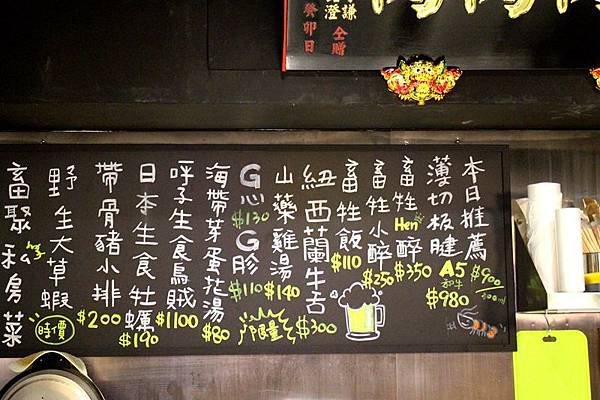 謙
仝贈
澄
癸卯日
本日推薦
$900
薄切板腱
A5
和牛
$980
畜牲Hen醉
$350
畜牲小醉
$250
畜牲飯
$110
紐西蘭牛舌
$300
山藥雞湯
$140
限量
G心
$130
G胗
$110
海帶芽蛋花湯
$80
呼子生食烏賊
$1100
日本生食牡蠣
$190
帶骨豬小排
$200
野生大草蝦
時價
畜聚私房菜